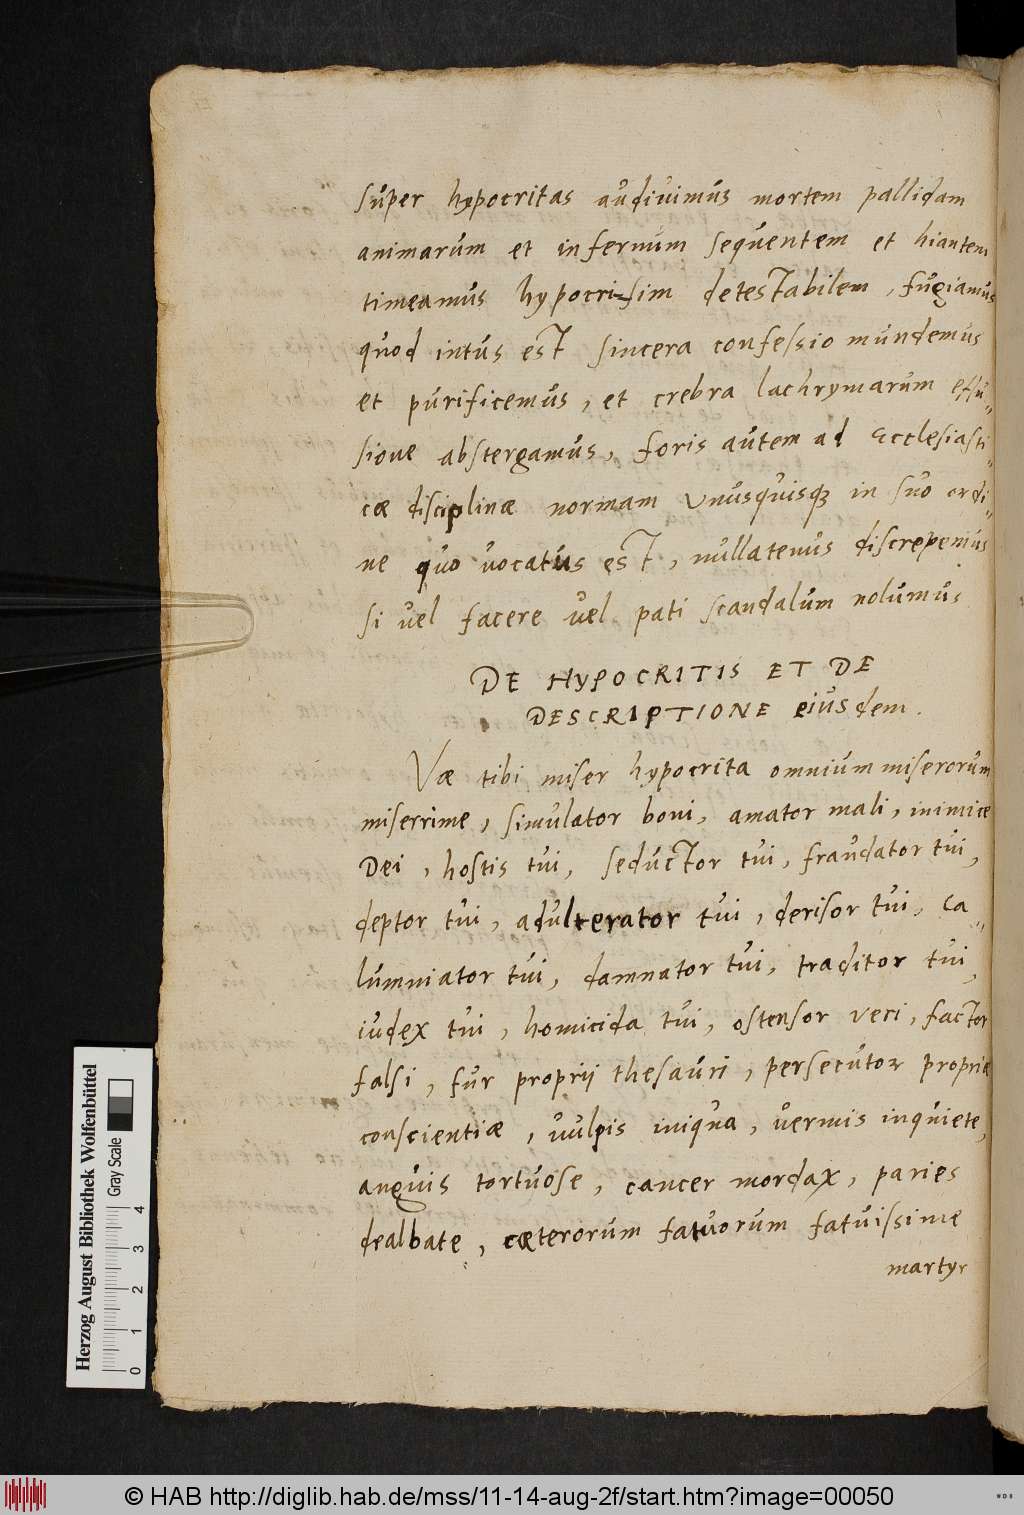 super hypocritas audiuimus mortem pallidam
animarum et infernum sequentem et hiantem
timeamus hypocrisim detestabilem, fugiamus
quod intus est sincera confessio mundemus
et purificemus, et crebra lachrymarum effu„
sione abstergamus, foris autem ad Ecclesiasti„
cæ disciplinæ normam Vnusquisqz in suo ordi„
ne quo vocatus est, nullatenus discrepemus
si vel facere vel pati scandalum nolumus.
DE HYPOCRITIS ET DE
DESCRIPTIONE eiusdem.
Væ tibi miser hypocrita omnium miserorum
miserrime, simulator boni, amator mali, inimice
Dei, hostis tui, seductor tui, fraudator tui,
deptor tui, adulterator tui, derisor tui, ca„
lumniator tui, damnator tui, traditor tui,
iudex tui, homicida tui, ostensor veri, factor
falsi, fur proprij thesauri, persecutor propriæ
conscientiæ, vulpis iniqua, vermis inquiete,
anguis tortuose, cancer mordax, paries
dealbate, cæterorum fatuorum fatuissime
martyr
Herzog August Bibliothek Wolfenbüttel
Gray Scale
0 1 2 3 4
© HAB http://diglib.hab.de/mss/11-14-aug-2f/start.htm?image=00050